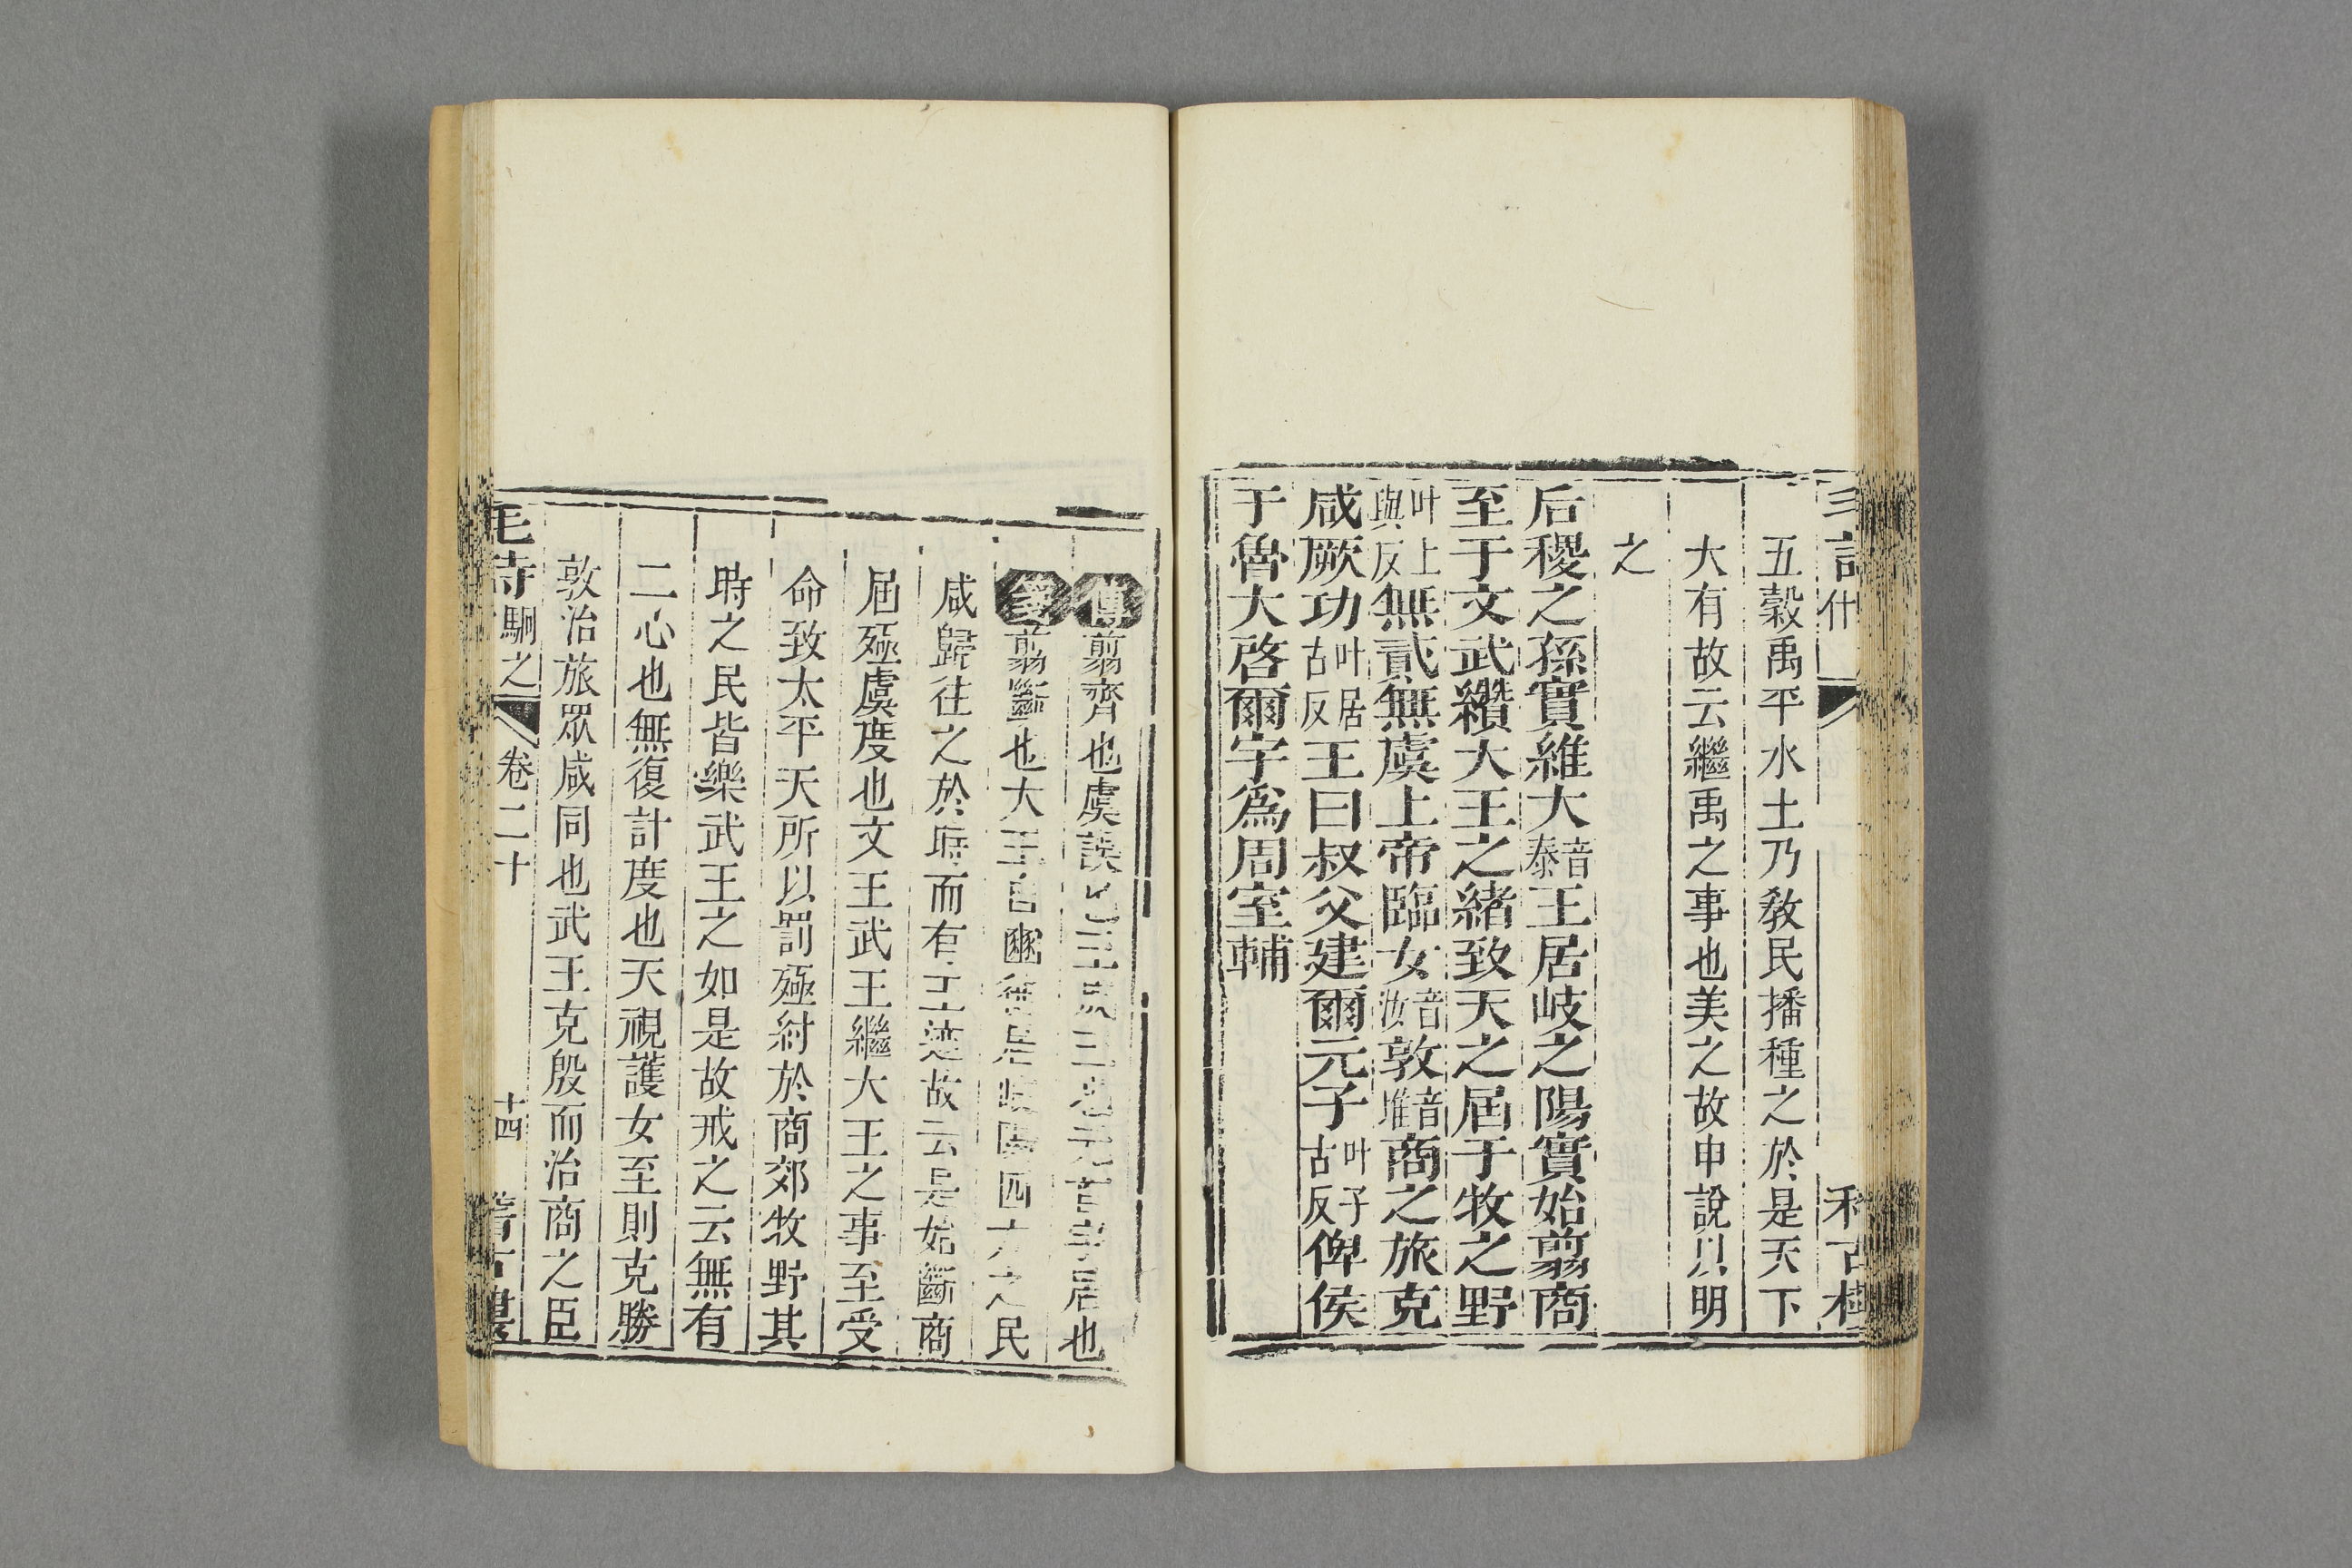 五穀禹平水土乃敎民播種之於是天下
大有故云繼禹之事也美之故申說以明
之
后稷之孫實維大音泰王居岐之陽實始翦商
至于文武纘大王之緒致天之屆于牧之野
叶上與反無貳無虞上帝臨女音汝敦音堆商之旅克
咸厥功叶居古反王曰叔父建爾元子叶子古反俾侯
于魯大啓爾宇爲周室輔
傳翦齊也虞誤也王成王也元首宇居也
箋翦斷也大王自豳徙居岐陽四方之民
咸歸往之於時而有王迹故云是始斷商
屆殛虞度也文王武王繼大王之事至受
命致太平天所以罰殛紂於商郊牧野其
時之民皆樂武王之如是故戒之云無有
二心也無復計度也天視護女至則克勝
敦治旅眾咸同也武王克殷而治商之臣
毛詩 駉之 卷二十 十四